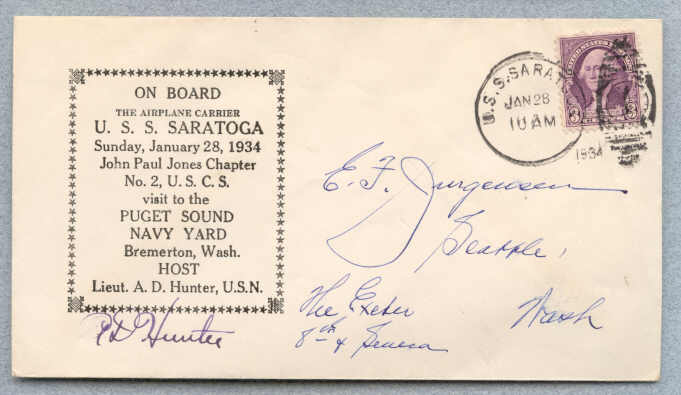 ON BOARD
THE AIRPLANE CARRIER
U. S. S. SARATOGA
Sunday, January 28, 1934
John Paul Jones Chapter
No. 2, U. S. C. S.
visit to the
PUGET SOUND
NAVY YARD
Bremerton, Wash.
HOST
Lieut. A. D. Hunter, U.S.N.
AD Hunter
U.S.S. SARA
JAN 28
10 AM
1934
3 3
E. F. Jurgensen
Seattle,
Wash
The Exeter
8th & Seneca